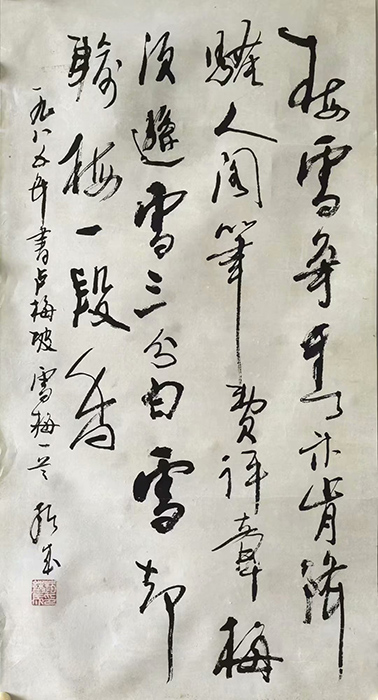 梅雪争春未肯降
骚人阁筆费评章梅
须遜雪三分白雪却
输梅一段香
一九八五年書卢梅坡雪梅一首